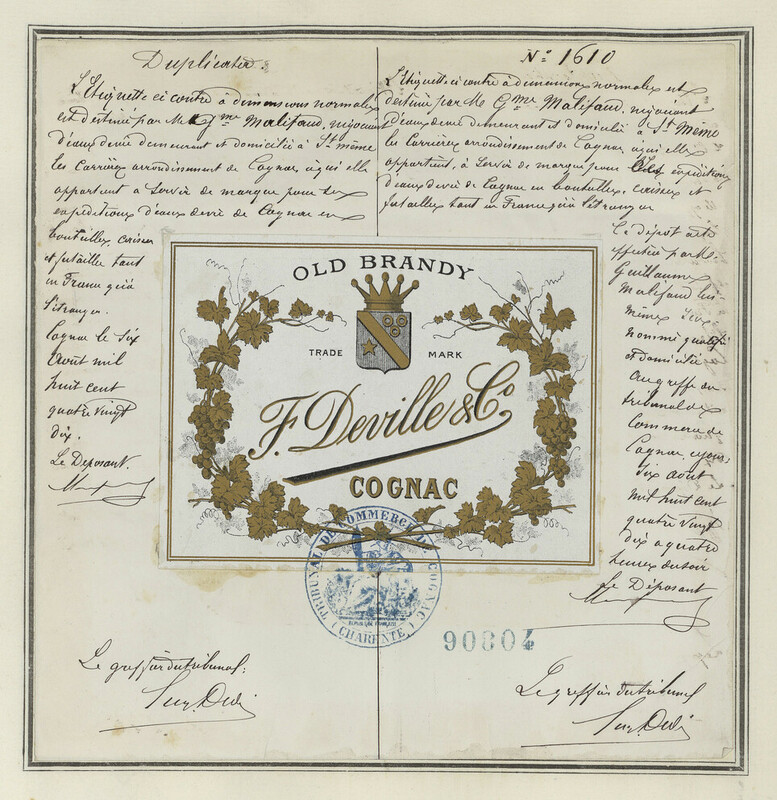 Duplicata.
L'Etiquette ci contre à dimensions normales
est destinée par M. Gme Malifaud, négociant
d'eaux devie demeurant et domicilié à St même
les Carrières arrondissement de Cognac, à qui elle
appartient à Servir de marque pour
expéditions d'eaux devie de Cognac en
bouteilles, caisses
et futaille tant
en France qu'à
l'étranger.
Cognac le Six
Août mil
huit cent
quatre vingt
dix.
Le Déposant.
No 1610
L'étiquette ci contre à dimensions normales est
destinée par Mr Gme Malifaud, négociant
d'eaux devie demeurant et domicilié à St Même
les Carrières arrondissement de Cognac, à qui elle
appartient, à Servir de marque pour expéditions
d'eaux devie de Cognac en bouteilles, caisses et
futailles tant en France qu'à l'étranger
Le dépôt a été
effectué par M.
Guillaume
Malifaud lui-
même
nommé qualifié
et domicilié
au greffe du
tribunal de
Commerce de
Cognac, ce jour
Six août
mil huit cent
quatre vingt
dix a quatre
heures du soir
Le Déposant
OLD BRANDY
TRADE MARK
F. Deville & Co
COGNAC
TRIBUNAL DE COMMERCE DE COGNAC
RÉPUBLIQUE FRANÇAISE
(CHARENTE)
90804
Le greffier du tribunal:
Le greffier du tribunal